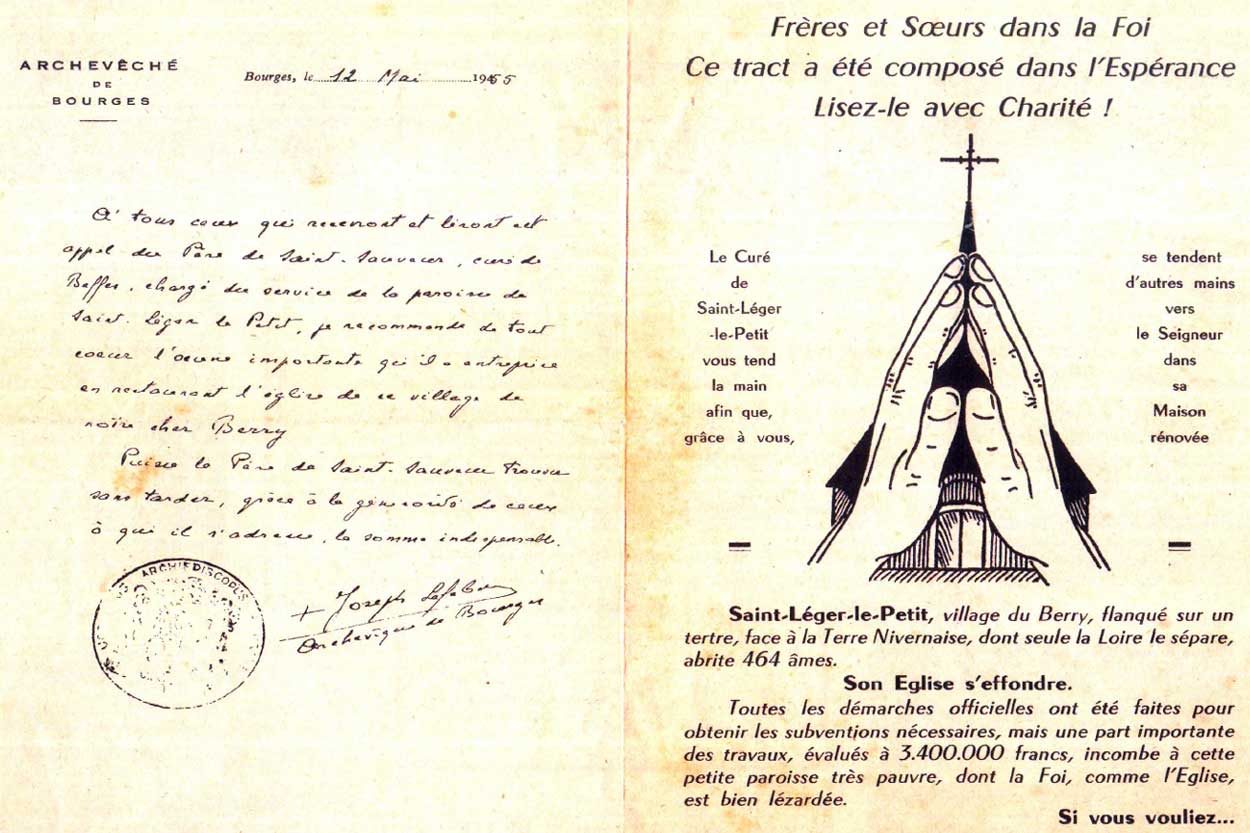 ARCHEVÊCHÉ
DE
BOURGES
Bourges, le 12 Mai 1955
A tous ceux qui recevront et liront cet
appel du Père de Saint-Sauveur, curé de
Beffes, chargé du service de la paroisse de
Saint-Léger le Petit, je recommande de tout
coeur l'œuvre importante qu'il a entreprise
en restaurant l'église de ce village de
notre cher Berry
Puisse le Père de Saint-Sauveur trouver
sans tarder, grâce à la générosité de ceux
à qui il s'adresse, la somme indispensable.
+ Joseph Lefebvre
Archevêque de Bourges
ARCHIEPISCOPUS
Frères et Sœurs dans la Foi
Ce tract a été composé dans l'Espérance
Lisez-le avec Charité !
Le Curé
de
Saint-Léger
-le-Petit
vous tend
la main
afin que,
grâce à vous,
se tendent
d'autres mains
vers
le Seigneur
dans
sa
Maison
rénovée
Saint-Léger-le-Petit, village du Berry, flanqué sur un
tertre, face à la Terre Nivernaise, dont seule la Loire le sépare,
abrite 464 âmes.
Son Eglise s'effondre.
Toutes les démarches officielles ont été faites pour
obtenir les subventions nécessaires, mais une part importante
des travaux, évalués à 3.400.000 francs, incombe à cette
petite paroisse très pauvre, dont la Foi, comme l'Eglise,
est bien lézardée.
Si vous vouliez...